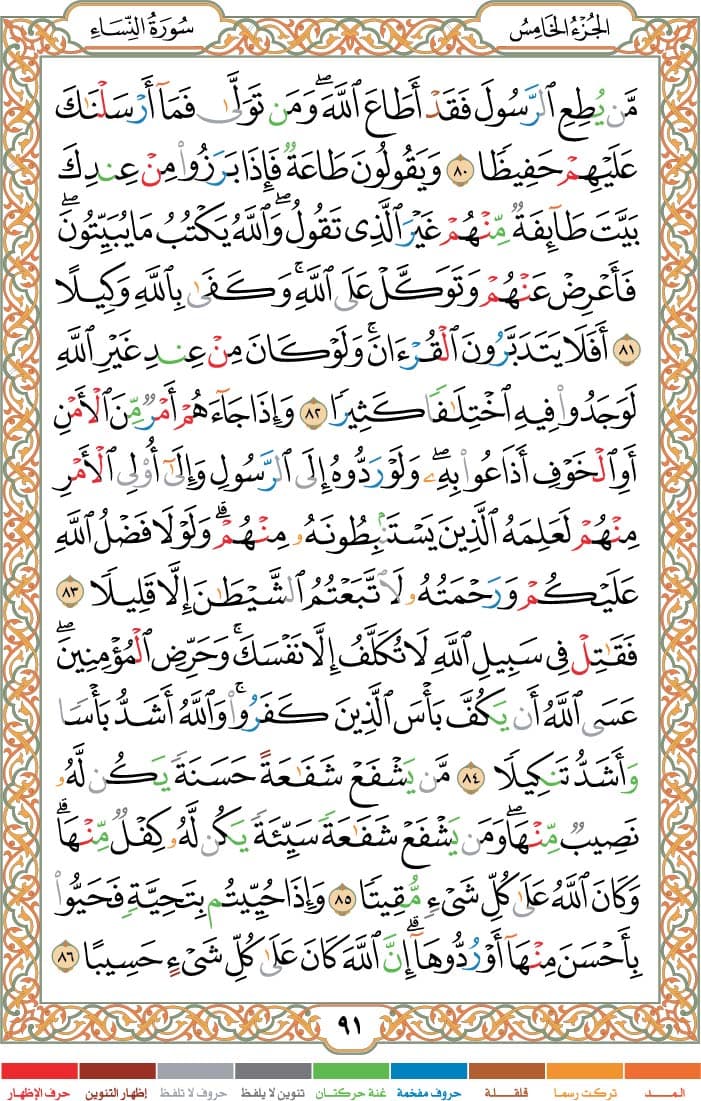 الجُزْءُ الخَامِسُ
سُورَةُ النِّسَاءِ
مَّن يُطِعِ ٱلرَّسُولَ فَقَدْ أَطَاعَ ٱللَّهَۖ وَمَن تَوَلَّىٰ فَمَآ أَرْسَلْنَٰكَ
عَلَيْهِمْ حَفِيظًا ٨٠ وَيَقُولُونَ طَاعَةٌ فَإِذَا بَرَزُوا۟ مِنْ عِندِكَ
بَيَّتَ طَآئِفَةٌ مِّنْهُمْ غَيْرَ ٱلَّذِى تَقُولُۖ وَٱللَّهُ يَكْتُبُ مَا يُبَيِّتُونَۖ
فَأَعْرِضْ عَنْهُمْ وَتَوَكَّلْ عَلَى ٱللَّهِۚ وَكَفَىٰ بِٱللَّهِ وَكِيلًا
٨١ أَفَلَا يَتَدَبَّرُونَ ٱلْقُرْءَانَۚ وَلَوْ كَانَ مِنْ عِندِ غَيْرِ ٱللَّهِ
لَوَجَدُوا۟ فِيهِ ٱخْتِلَٰفًا كَثِيرًا ٨٢ وَإِذَا جَآءَهُمْ أَمْرٌ مِّنَ ٱلْأَمْنِ
أَوِ ٱلْخَوْفِ أَذَاعُوا۟ بِهِۦۖ وَلَوْ رَدُّوهُ إِلَى ٱلرَّسُولِ وَإِلَىٰٓ أُو۟لِى ٱلْأَمْرِ
مِنْهُمْ لَعَلِمَهُ ٱلَّذِينَ يَسْتَنۢبِطُونَهُۥ مِنْهُمْۗ وَلَوْلَا فَضْلُ ٱللَّهِ
عَلَيْكُمْ وَرَحْمَتُهُۥ لَٱتَّبَعْتُمُ ٱلشَّيْطَٰنَ إِلَّا قَلِيلًا ٨٣
فَقَٰتِلْ فِى سَبِيلِ ٱللَّهِ لَا تُكَلَّفُ إِلَّا نَفْسَكَۚ وَحَرِّضِ ٱلْمُؤْمِنِينَۖ
عَسَى ٱللَّهُ أَن يَكُفَّ بَأْسَ ٱلَّذِينَ كَفَرُوا۟ۚ وَٱللَّهُ أَشَدُّ بَأْسًا
وَأَشَدُّ تَنكِيلًا ٨٤ مَّن يَشْفَعْ شَفَٰعَةً حَسَنَةً يَكُن لَّهُۥ
نَصِيبٌ مِّنْهَاۖ وَمَن يَشْفَعْ شَفَٰعَةً سَيِّئَةً يَكُن لَّهُۥ كِفْلٌ مِّنْهَاۗ
وَكَانَ ٱللَّهُ عَلَىٰ كُلِّ شَىْءٍ مُّقِيتًا ٨٥ وَإِذَا حُيِّيتُم بِتَحِيَّةٍ فَحَيُّوا۟
بِأَحْسَنَ مِنْهَآ أَوْ رُدُّوهَآۗ إِنَّ ٱللَّهَ كَانَ عَلَىٰ كُلِّ شَىْءٍ حَسِيبًا ٨٦
٩١
المـــد تركت رسما قلقـلة حروف مفخمة غنة حركتان تنوين لا يلفظ حروف لا تلفظ إظهار التنوين حرف الإظهار